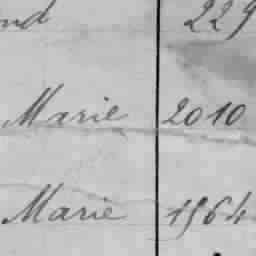 nd 229
Marie 2010
Marie 1564